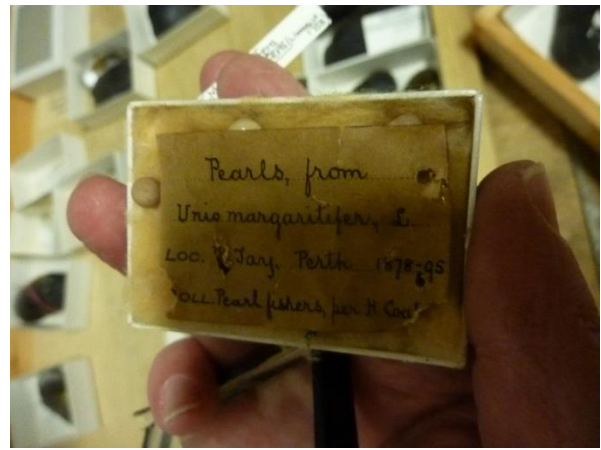 Pearls, from
Unio margaritifer, L.
Loc. R. Tay. Perth 1878-95
Coll. Pearl fishers, per H.